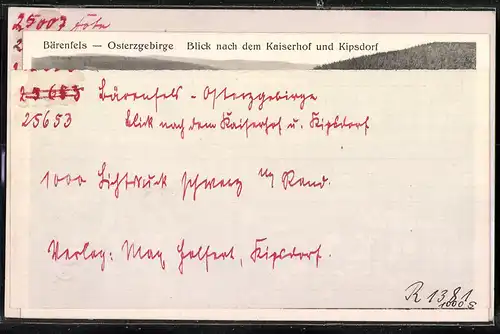 25003 Foto
Bärenfels — Osterzgebirge Blick nach dem Kaiserhof und Kipsdorf
25653 Bärenfels - Osterzgebirge
25653 Blick nach dem Kaiserhof u. Kipsdorf
1000 Lichtdruck schwarz m/ Rand.
Verlag: Max Helfert, Kipsdorf.
R 1381
1000 S